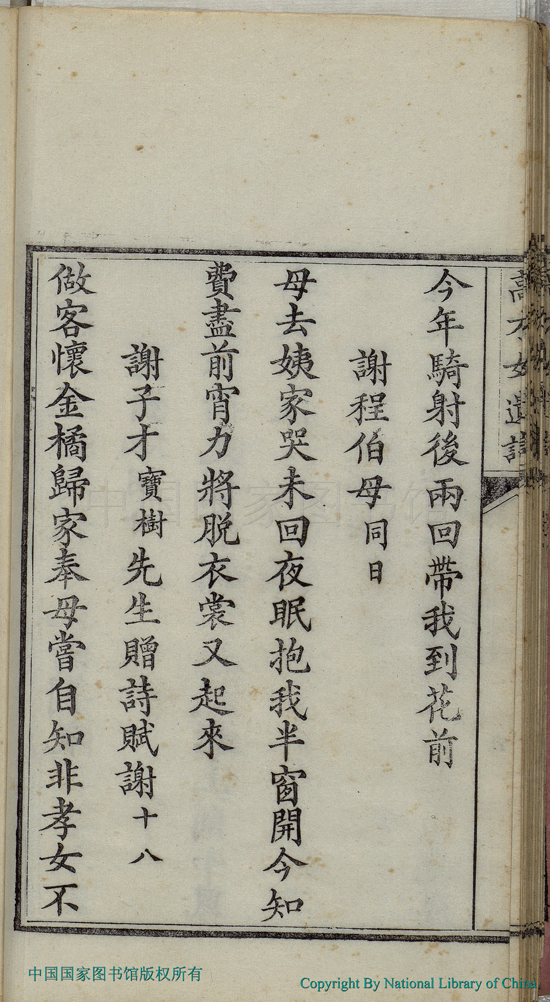 高才女遺詩
今年騎射後兩回帶我到花前
謝程伯母同日
母去姨家哭未回夜眠抱我半窗開今知
費盡前宵力將脱衣裳又起來
謝子才寶樹先生贈詩賦謝十八
做客懷金橘歸家奉母嘗自知非孝女不
中国国家图书馆版权所有
Copyright By National Library of China